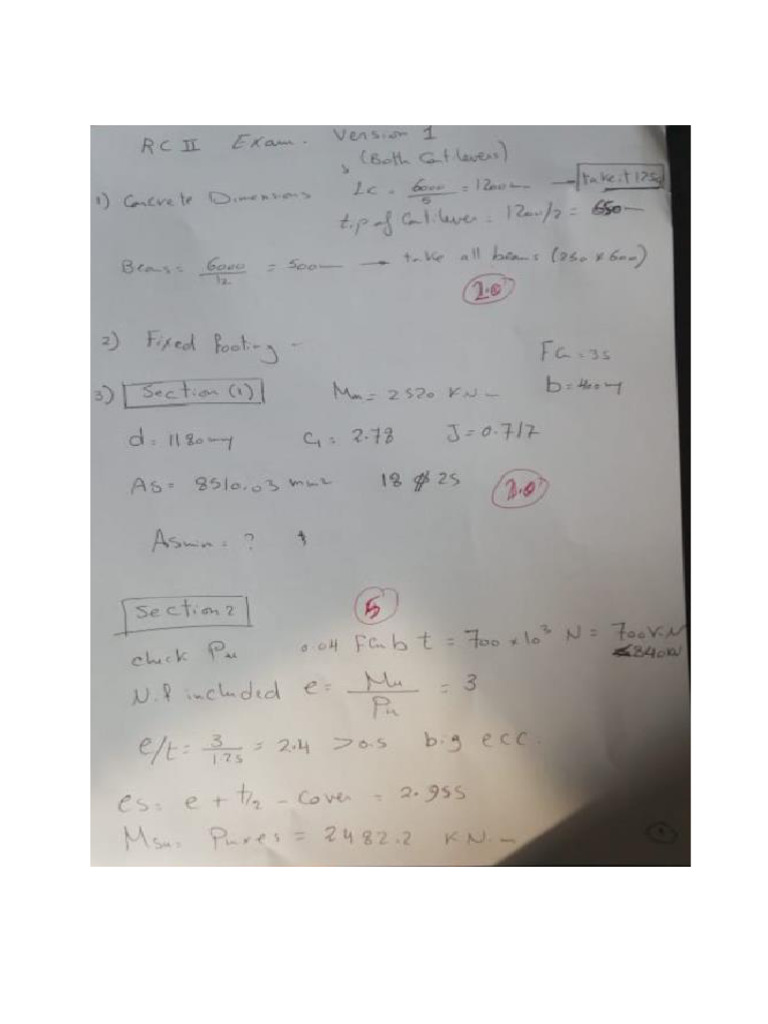 RC II Exam. Version 1
(Both Cantilevers)
1) Concrete Dimensions Lc = 6000/5 = 1200 → take it 1250
tip of Cantilever = 1200/2 = 650
Beams = 6000/12 = 500 → take all beams (250 × 600)
2.0
2) Fixed footing -
Fcu = 35
3) Section (1) Mu = 2520 KN- b = 400
d = 1180 C1 = 2.78 J = 0.717
As = 8510.03 mm2 18 ɸ 25
2.0
Asmin = ?
Section 2
5
check Pu 0.04 Fcu b t = 700 × 10³ N = 700 KN
< 840 KN
N.F included e = Mu/Pu = 3
e/t = 3/1.25 = 2.4 > 0.5 big ecc.
es = e + t/2 - Cover = 2.955
Msu = Pu × es = 2482.2 KN.-